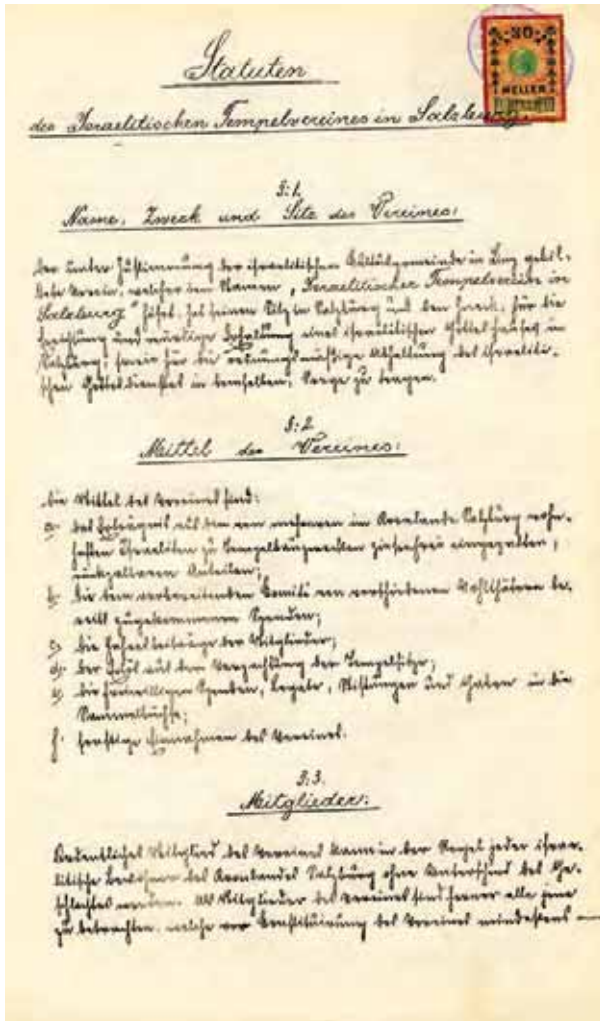 Statuten
30
HELLER
des Israelitischen Tempelvereines in Salzburg.
§:1.
Name, Zweck und Sitz des Vereines:
Der unter Zustimmung der israelitischen Kultusgemeinde in Linz gebil-
dete Verein, welcher den Namen „Israelitischer Tempelverein in
Salzburg" führt, hat seinen Sitz in Salzburg und den Zweck, für die
Errichtung und würdige Erhaltung eines israelitischen Gotteshauses in
Salzburg, sowie für die ordnungsmäßige Abhaltung des israeliti-
schen Gottesdienstes in demselben, Sorge zu tragen.
§:2
Mittel des Vereines:
Die Mittel des Vereines sind:
a. das Erträgnis aus den von mehreren im Kronlande Salzburg wohn-
haften Israeliten zu Tempelbauzwecken zinsenfrei eingezahlten,
rückzahlbaren Anteilen;
b. die dem vorbereitenden Komité von verschiedenen Wohltätern be-
reits zugekommenen Spenden;
c. die Jahresbeiträge der Mitglieder;
d. der Erlös aus der Verpachtung der Tempelsitze;
e. die freiwilligen Spenden, Legate, Stiftungen und Gaben in die
Sammelbüchse;
f. sonstige Einnahmen des Vereines.
§:3.
Mitglieder:
Ordentliches Mitglied des Vereines kann in der Regel jeder israe-
litische Bewohner des Kronlandes Salzburg ohne Unterschied des Ge-
schlechtes werden. Als Mitglieder des Vereines sind ferner alle jene
zu betrachten, welche vor Constituirung des Vereines mindestens —